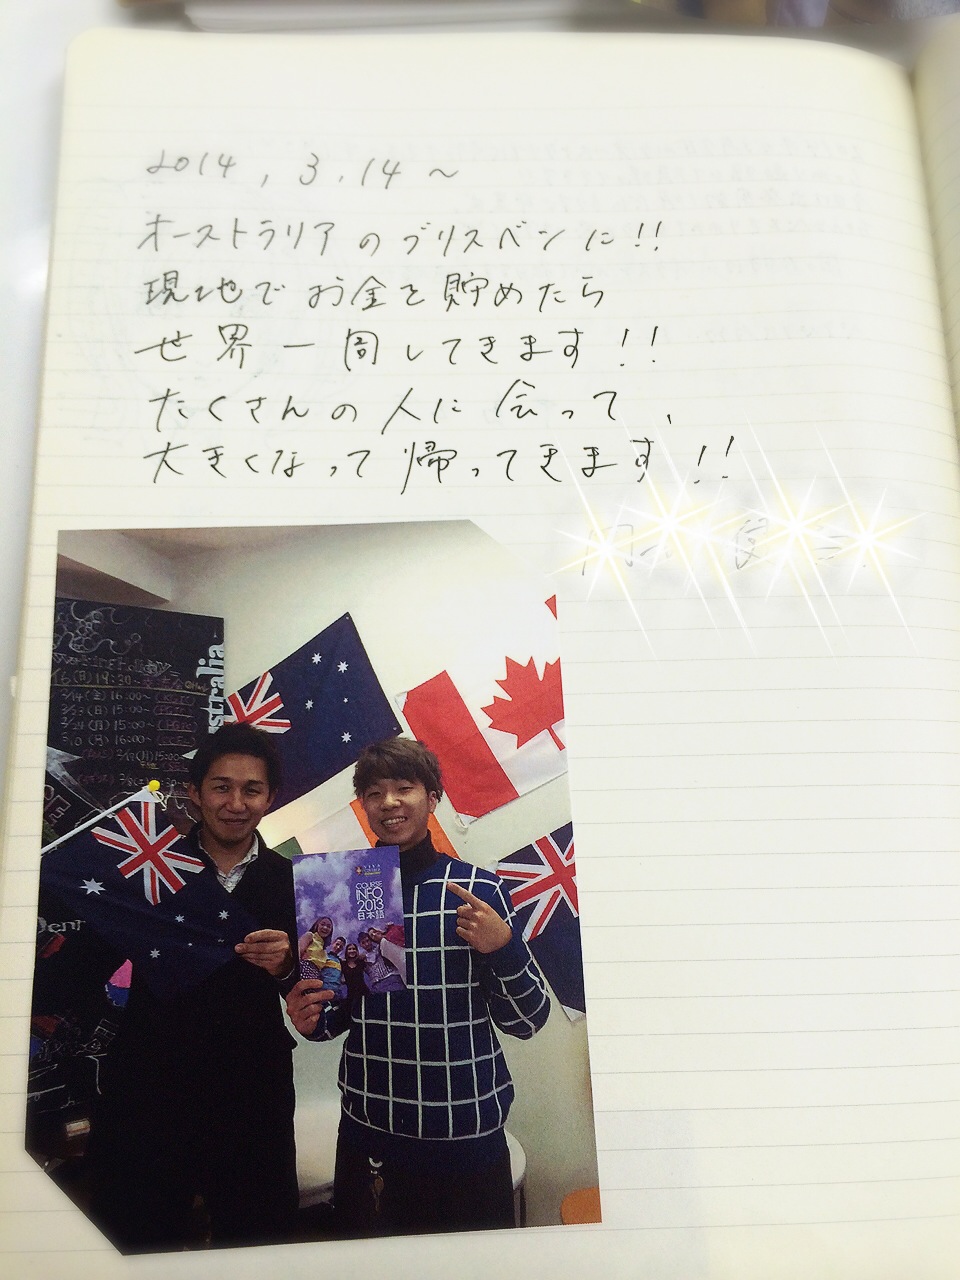 2014, 3.14~
オーストラリアのブリスベンに!!
現地でお金を貯めたら
世界一周してきます!!
たくさんの人に会って、
大きくなって帰ってきます!!
Working Holiday
3/14(金) 16:00~
15:00~
16:00~
COURSE
INFO
2013
日本語